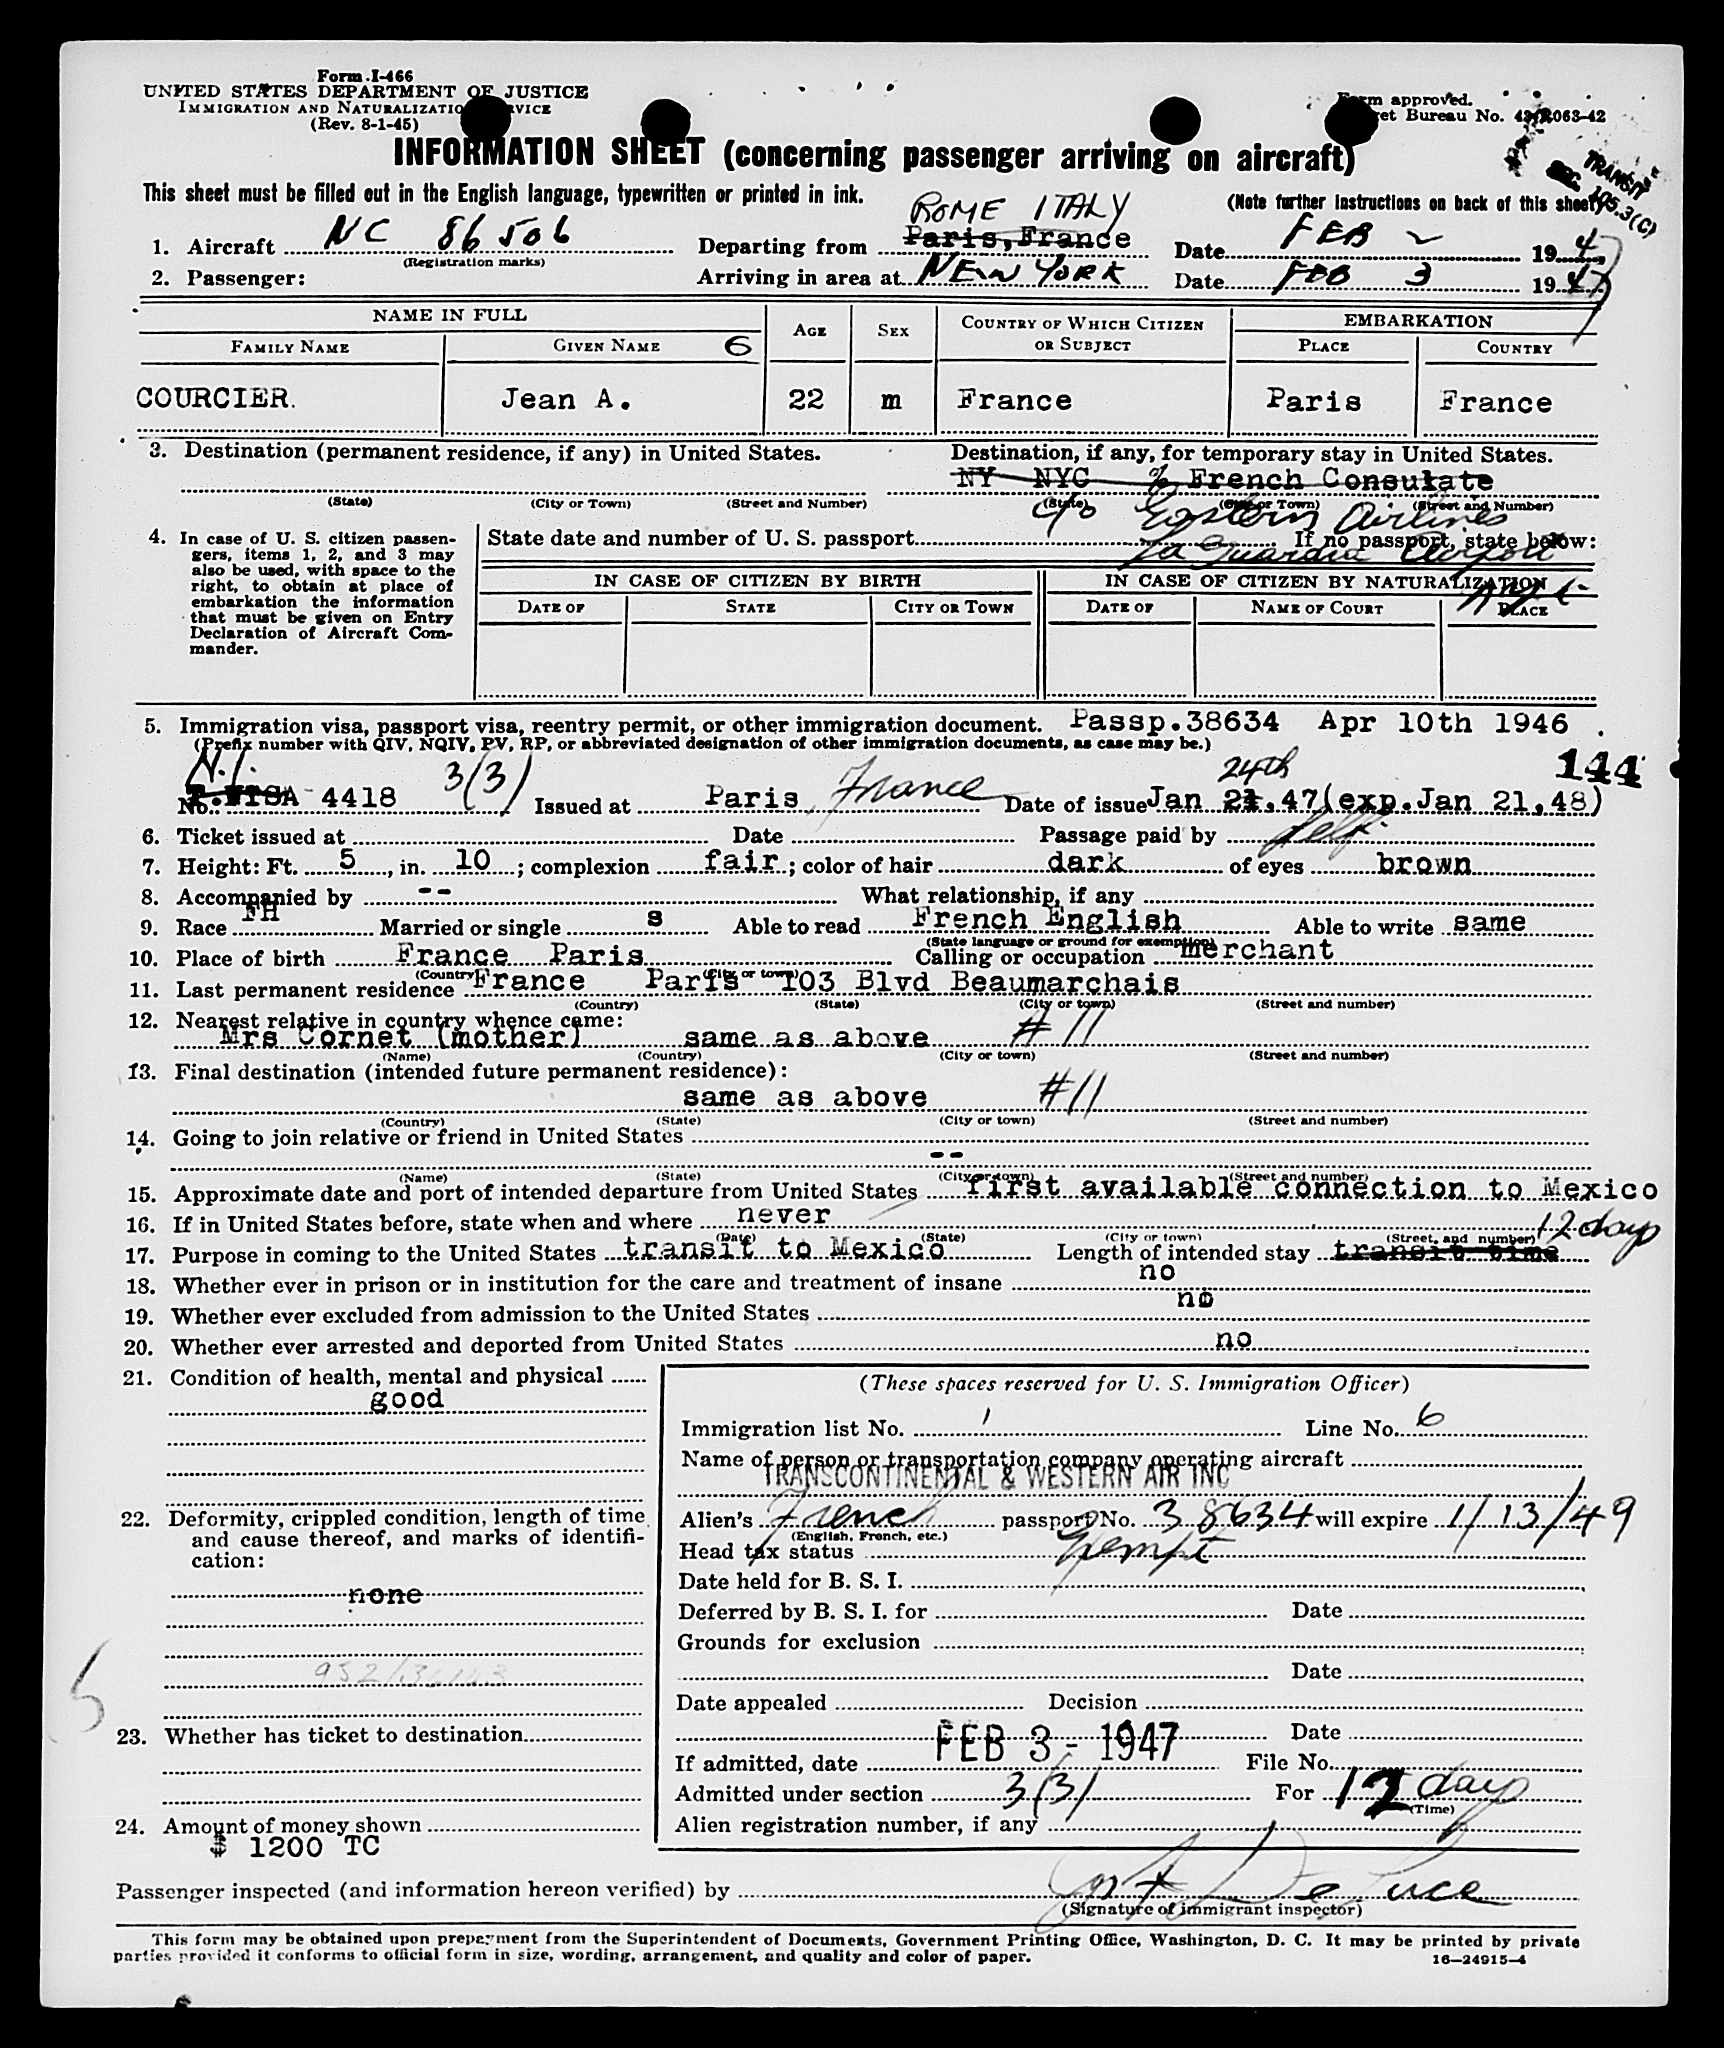 Form I-466
UNITED STATES DEPARTMENT OF JUSTICE
IMMIGRATION AND NATURALIZATION SERVICE
(Rev. 8-1-45)
Form approved.
Bureau No. 43-R063-42
TRANSIT
SEC. 105.3(C)
INFORMATION SHEET (concerning passenger arriving on aircraft)
This sheet must be filled out in the English language, typewritten or printed in ink.
(Note further instructions on back of this sheet)
ROME ITALY
1. Aircraft NC 86506 Departing from Paris, France Date FEB 2 1947
(Registration marks)
2. Passenger: Arriving in area at NEW YORK Date FEB 3 1947
NAME IN FULL AGE SEX COUNTRY OF WHICH CITIZEN OR SUBJECT EMBARKATION
FAMILY NAME GIVEN NAME 6 PLACE COUNTRY
COURCIER. Jean A. 22 m France Paris France
3. Destination (permanent residence, if any) in United States. Destination, if any, for temporary stay in United States.
NY NYC % French Consulate
(State) (City or Town) (Street and Number) (State) (City or Town) (Street and Number)
c/o Eastern Airlines
La Guardia Airport
4. In case of U. S. citizen passengers, items 1, 2, and 3 may also be used, with space to the right, to obtain at place of embarkation the information that must be given on Entry Declaration of Aircraft Commander.
State date and number of U. S. passport If no passport, state below:
IN CASE OF CITIZEN BY BIRTH IN CASE OF CITIZEN BY NATURALIZATION
DATE OF STATE CITY OR TOWN DATE OF NAME OF COURT PLACE
5. Immigration visa, passport visa, reentry permit, or other immigration document. Passp.38634 Apr 10th 1946
(Prefix number with QIV, NQIV, PV, RP, or abbreviated designation of other immigration documents, as case may be.)
144
N.I. 3(3) 24th
No. P.VISA 4418 Issued at Paris, France Date of issue Jan 21.47(exp.Jan 21,48)
6. Ticket issued at Date Passage paid by self
7. Height: Ft. 5, in. 10; complexion fair; color of hair dark of eyes brown
8. Accompanied by -- What relationship, if any
9. Race FH Married or single s Able to read French English Able to write same
(State language or ground for exemption)
10. Place of birth France Paris Calling or occupation merchant
(Country) (City or town)
11. Last permanent residence France Paris 103 Blvd Beaumarchais
(Country) (State) (City or town) (Street and number)
12. Nearest relative in country whence came:
Mrs Cornet (mother) same as above #11
(Name) (Country) (City or town) (Street and number)
13. Final destination (intended future permanent residence):
same as above #11
(Country) (State) (City or town) (Street and number)
14. Going to join relative or friend in United States
--
(Name) (State) (City or town) (Street and number)
15. Approximate date and port of intended departure from United States first available connection to Mexico
16. If in United States before, state when and where never
(Date) (State) (City or town) (Street and number)
12 days
17. Purpose in coming to the United States transit to Mexico Length of intended stay transit time
18. Whether ever in prison or in institution for the care and treatment of insane no
19. Whether ever excluded from admission to the United States no
20. Whether ever arrested and deported from United States no
21. Condition of health, mental and physical
good
22. Deformity, crippled condition, length of time and cause thereof, and marks of identification:
none
23. Whether has ticket to destination
24. Amount of money shown
$ 1200 TC
(These spaces reserved for U. S. Immigration Officer)
Immigration list No. 1 Line No. 6
Name of person or transportation company operating aircraft
TRANSCONTINENTAL & WESTERN AIR INC
Alien's French passport No. 38634 will expire 1/13/49
(English, French, etc.)
Head tax status Exempt
Date held for B. S. I.
Deferred by B. S. I. for Date
Grounds for exclusion
Date
Date appealed Decision
Date
If admitted, date FEB 3 - 1947 File No.
Admitted under section 3(3) For 12 days
(Time)
Alien registration number, if any
Passenger inspected (and information hereon verified) by
(Signature of immigrant inspector)
This form may be obtained upon prepayment from the Superintendent of Documents, Government Printing Office, Washington, D. C. It may be printed by private
parties provided it conforms to official form in size, wording, arrangement, and quality and color of paper.
16—24915-4